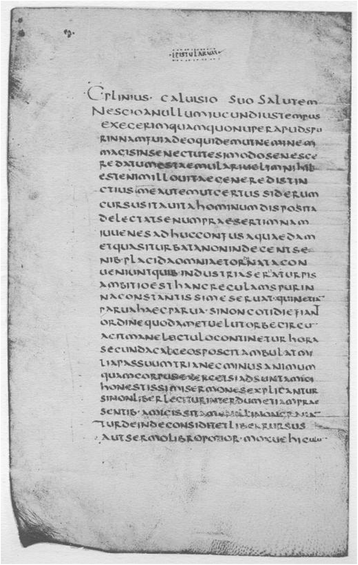 ·EPISTULARUM·
C·PLINIUS· CALUISIO SUO SALUTEM
NESCIOANULLUMIUCUNDIUSTEMPUS
EXEGERIMQUAMQUONUPERAPUDSPU
RINNAMFUIADEOQUIDEMUTNEMINEM
MAGISINSENECTUTESIMODOSENESCE
REDATUMESTAEMULARIUELIMNIHIL
ESTENIMILLOUITAEGENEREDISTIN
CTIUSMEAUTEMUTCERTUSSIDERUM
CURSUSITAUITAHOMINUMDISPOSITA
DELECTATSENUMPRAESERTIMNAM
IUUENESADHUCCONFUSAQUAEDAM
ETQUASITURBATANONINDECENTSE
NIBPLACIDAOMNIAETORNATACON
UENIUNTQUIBINDUSTRIASERATURPIS
AMBITIOESTHANCREGULAMSPURIN
NACONSTANTISSIMESERUAT·QUINETIA
PARUAHAECPARUA·SINONCOTIDIEFIANT
ORDINEQUODAMETUELUTORBECIRCU
AGITMANELECTULOCONTINETURHORA
SECUNDACALCEOSPOSCITAMBULATMI
LIAPASSUUMTRIANECMINUSANIMUM
QUAMCORPUSEXERCETSIADSUNTAMICI
HONESTISSIMISERMONESEXPLICANTUR
SINONLIBERLEGITURINTERDUMETIAMPRAE
SENTIB·AMICISSITAMENILLINONGRAUAN
TURDEINDECONSIDITETLIBERRURSUS
AUTSERMOLIBROPOTIOR·MOXUEHICULUM